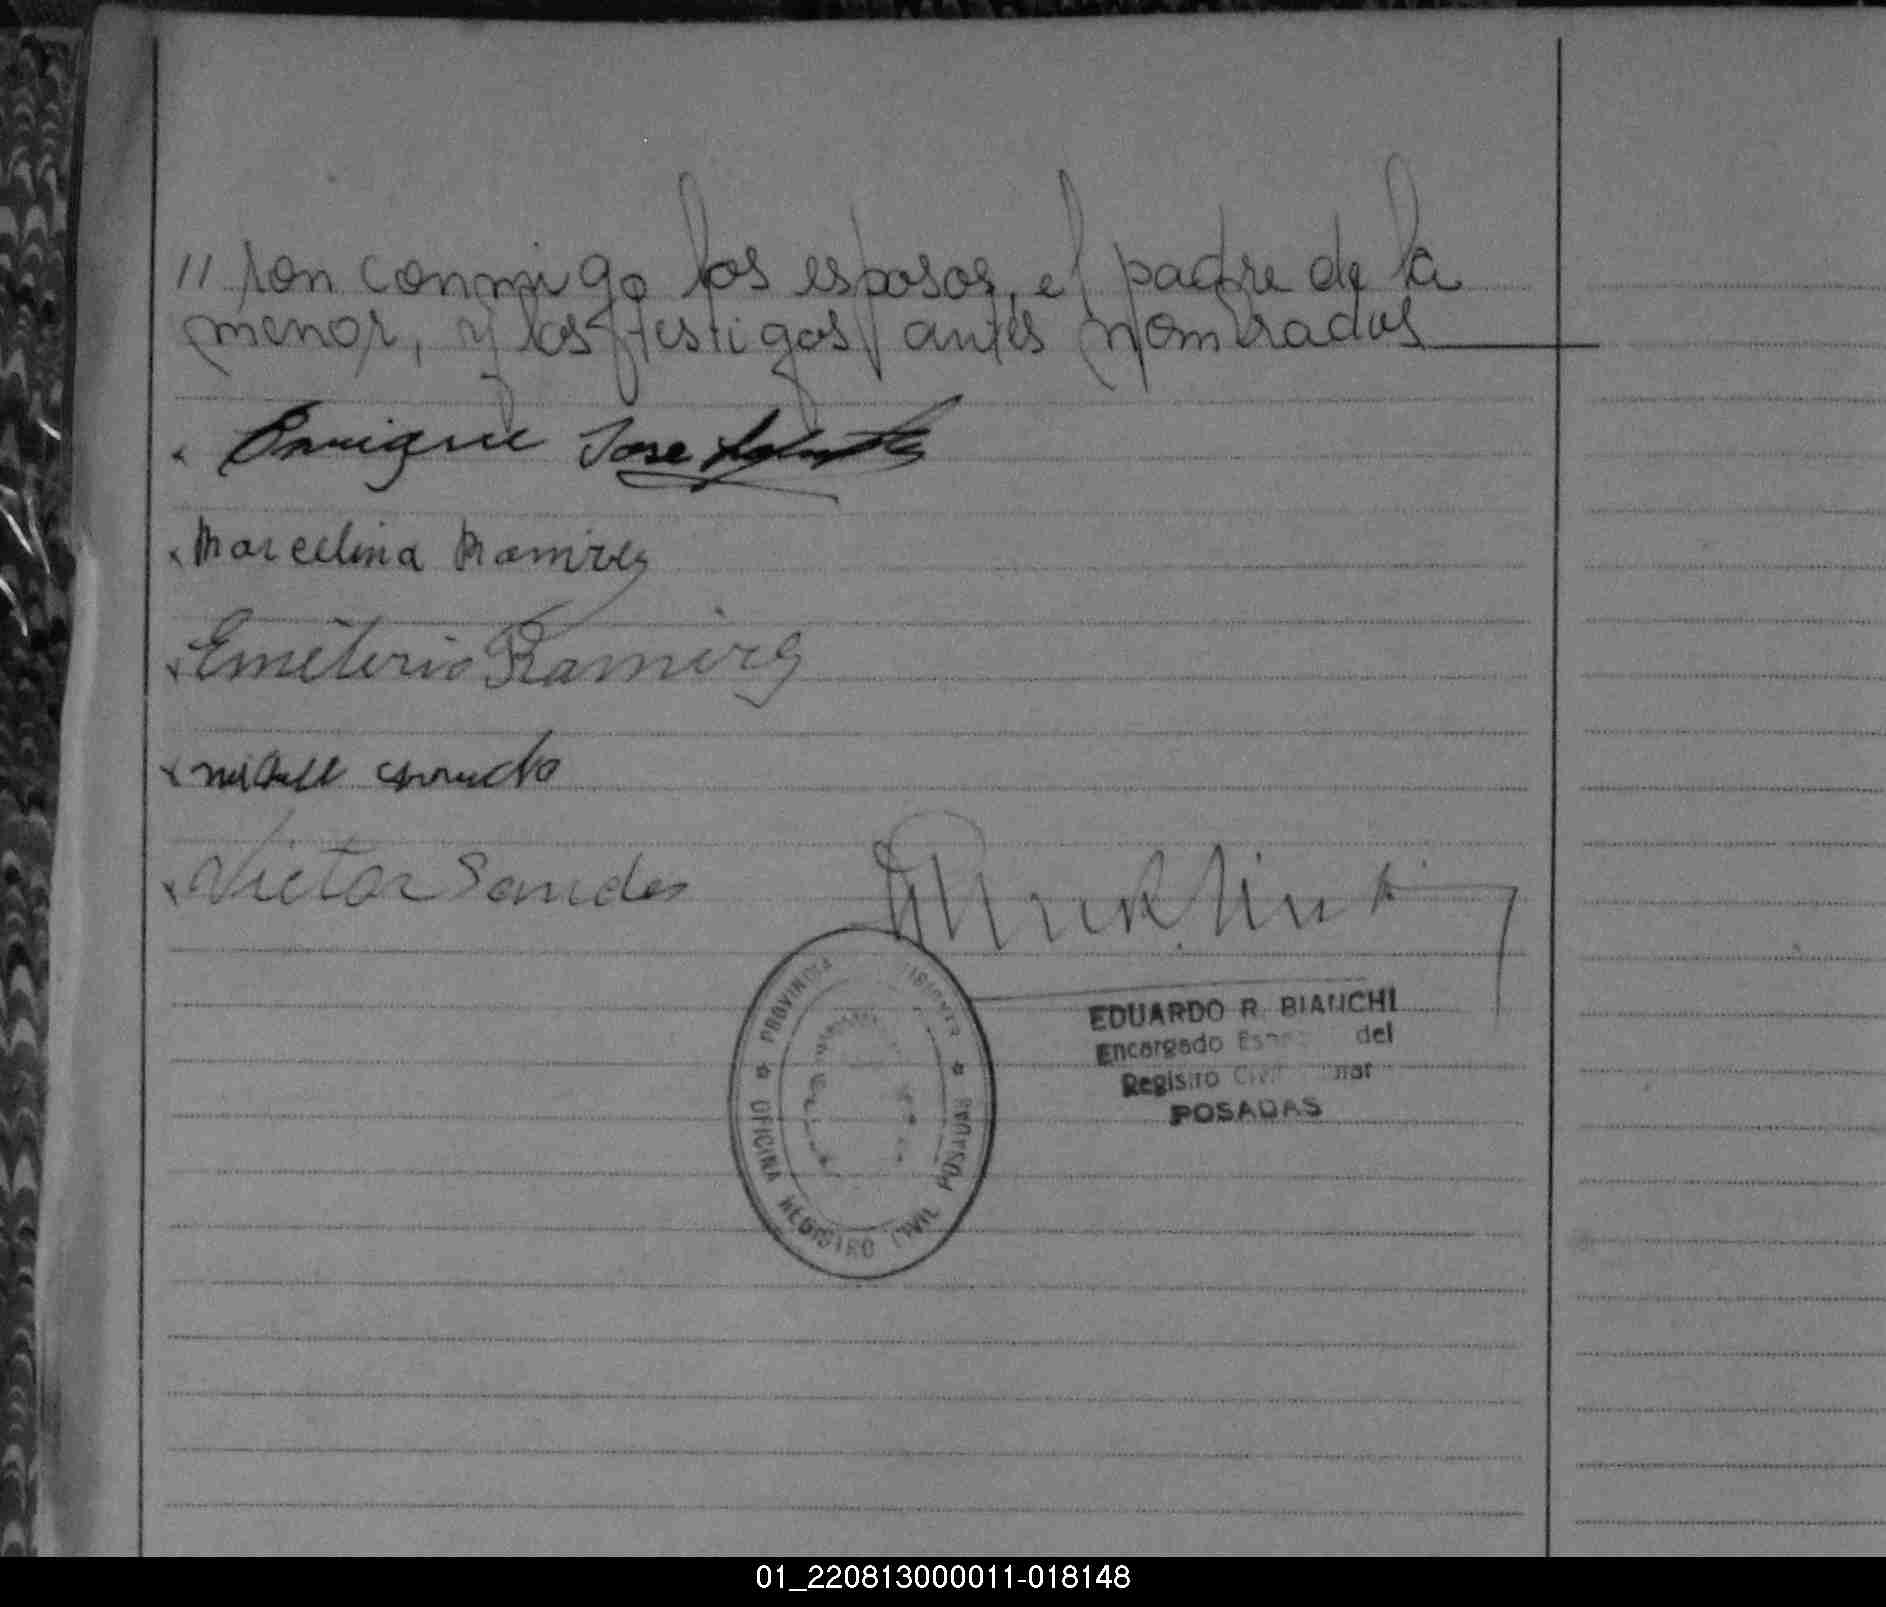 // ron conmigo los esposos, el padre de la
menor, y los testigos antes nombrados
Enrique Jose
Marcelina Ramirez
Emeterio Ramirez
Victor
PROVINCIA MISIONES
OFICINA REGISTRO CIVIL POSADAS
EDUARDO R. BIANCHI
Encargado del
Registro Civil
POSADAS
01_220813000011-018148